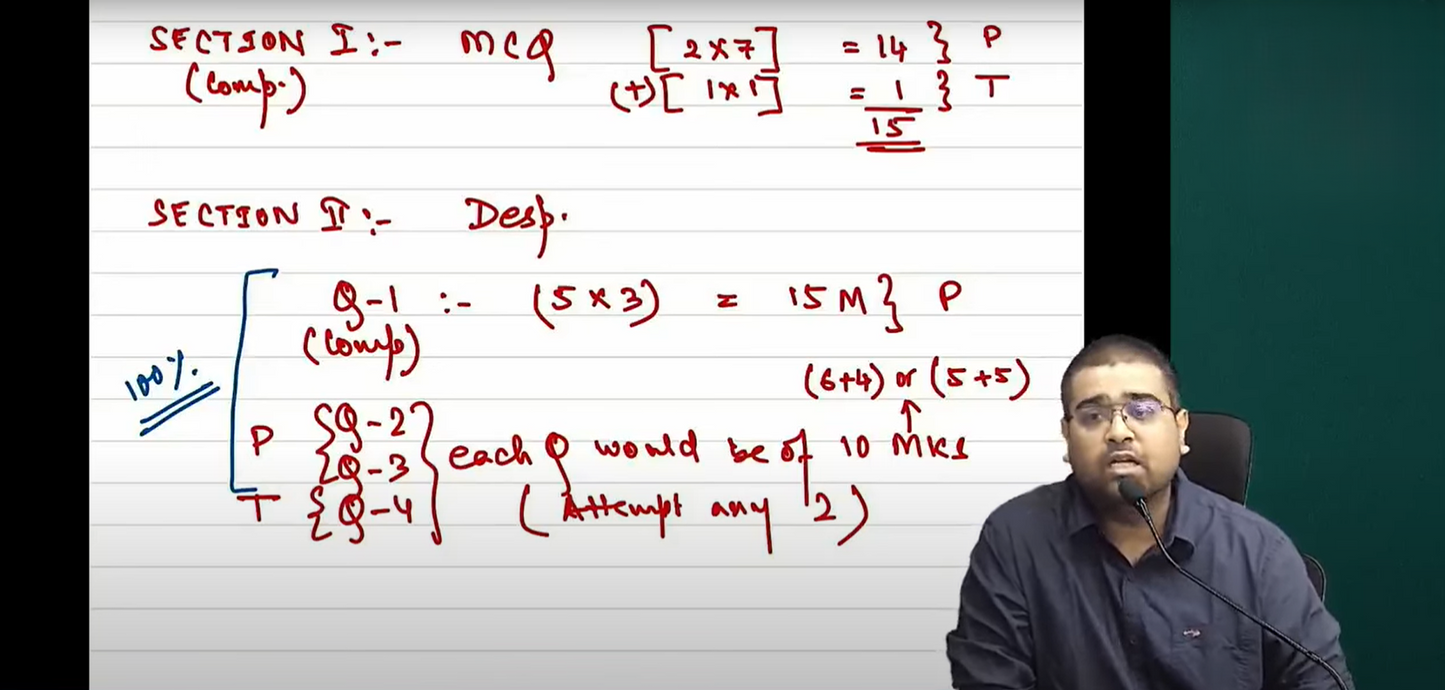 SECTION I :- MCQ [2 x 7] = 14 } P
(Comp.) (+) [ 1 x 1 ] = 1 } T
15
SECTION II :- Desp.
Q-1 :- (5 x 3) = 15 M } P
(Comp)
100%.
(6+4) or (5+5)
P { Q-2
{ Q-3 } each Q would be of 10 MKs
T { Q-4 (Attempt any 2)